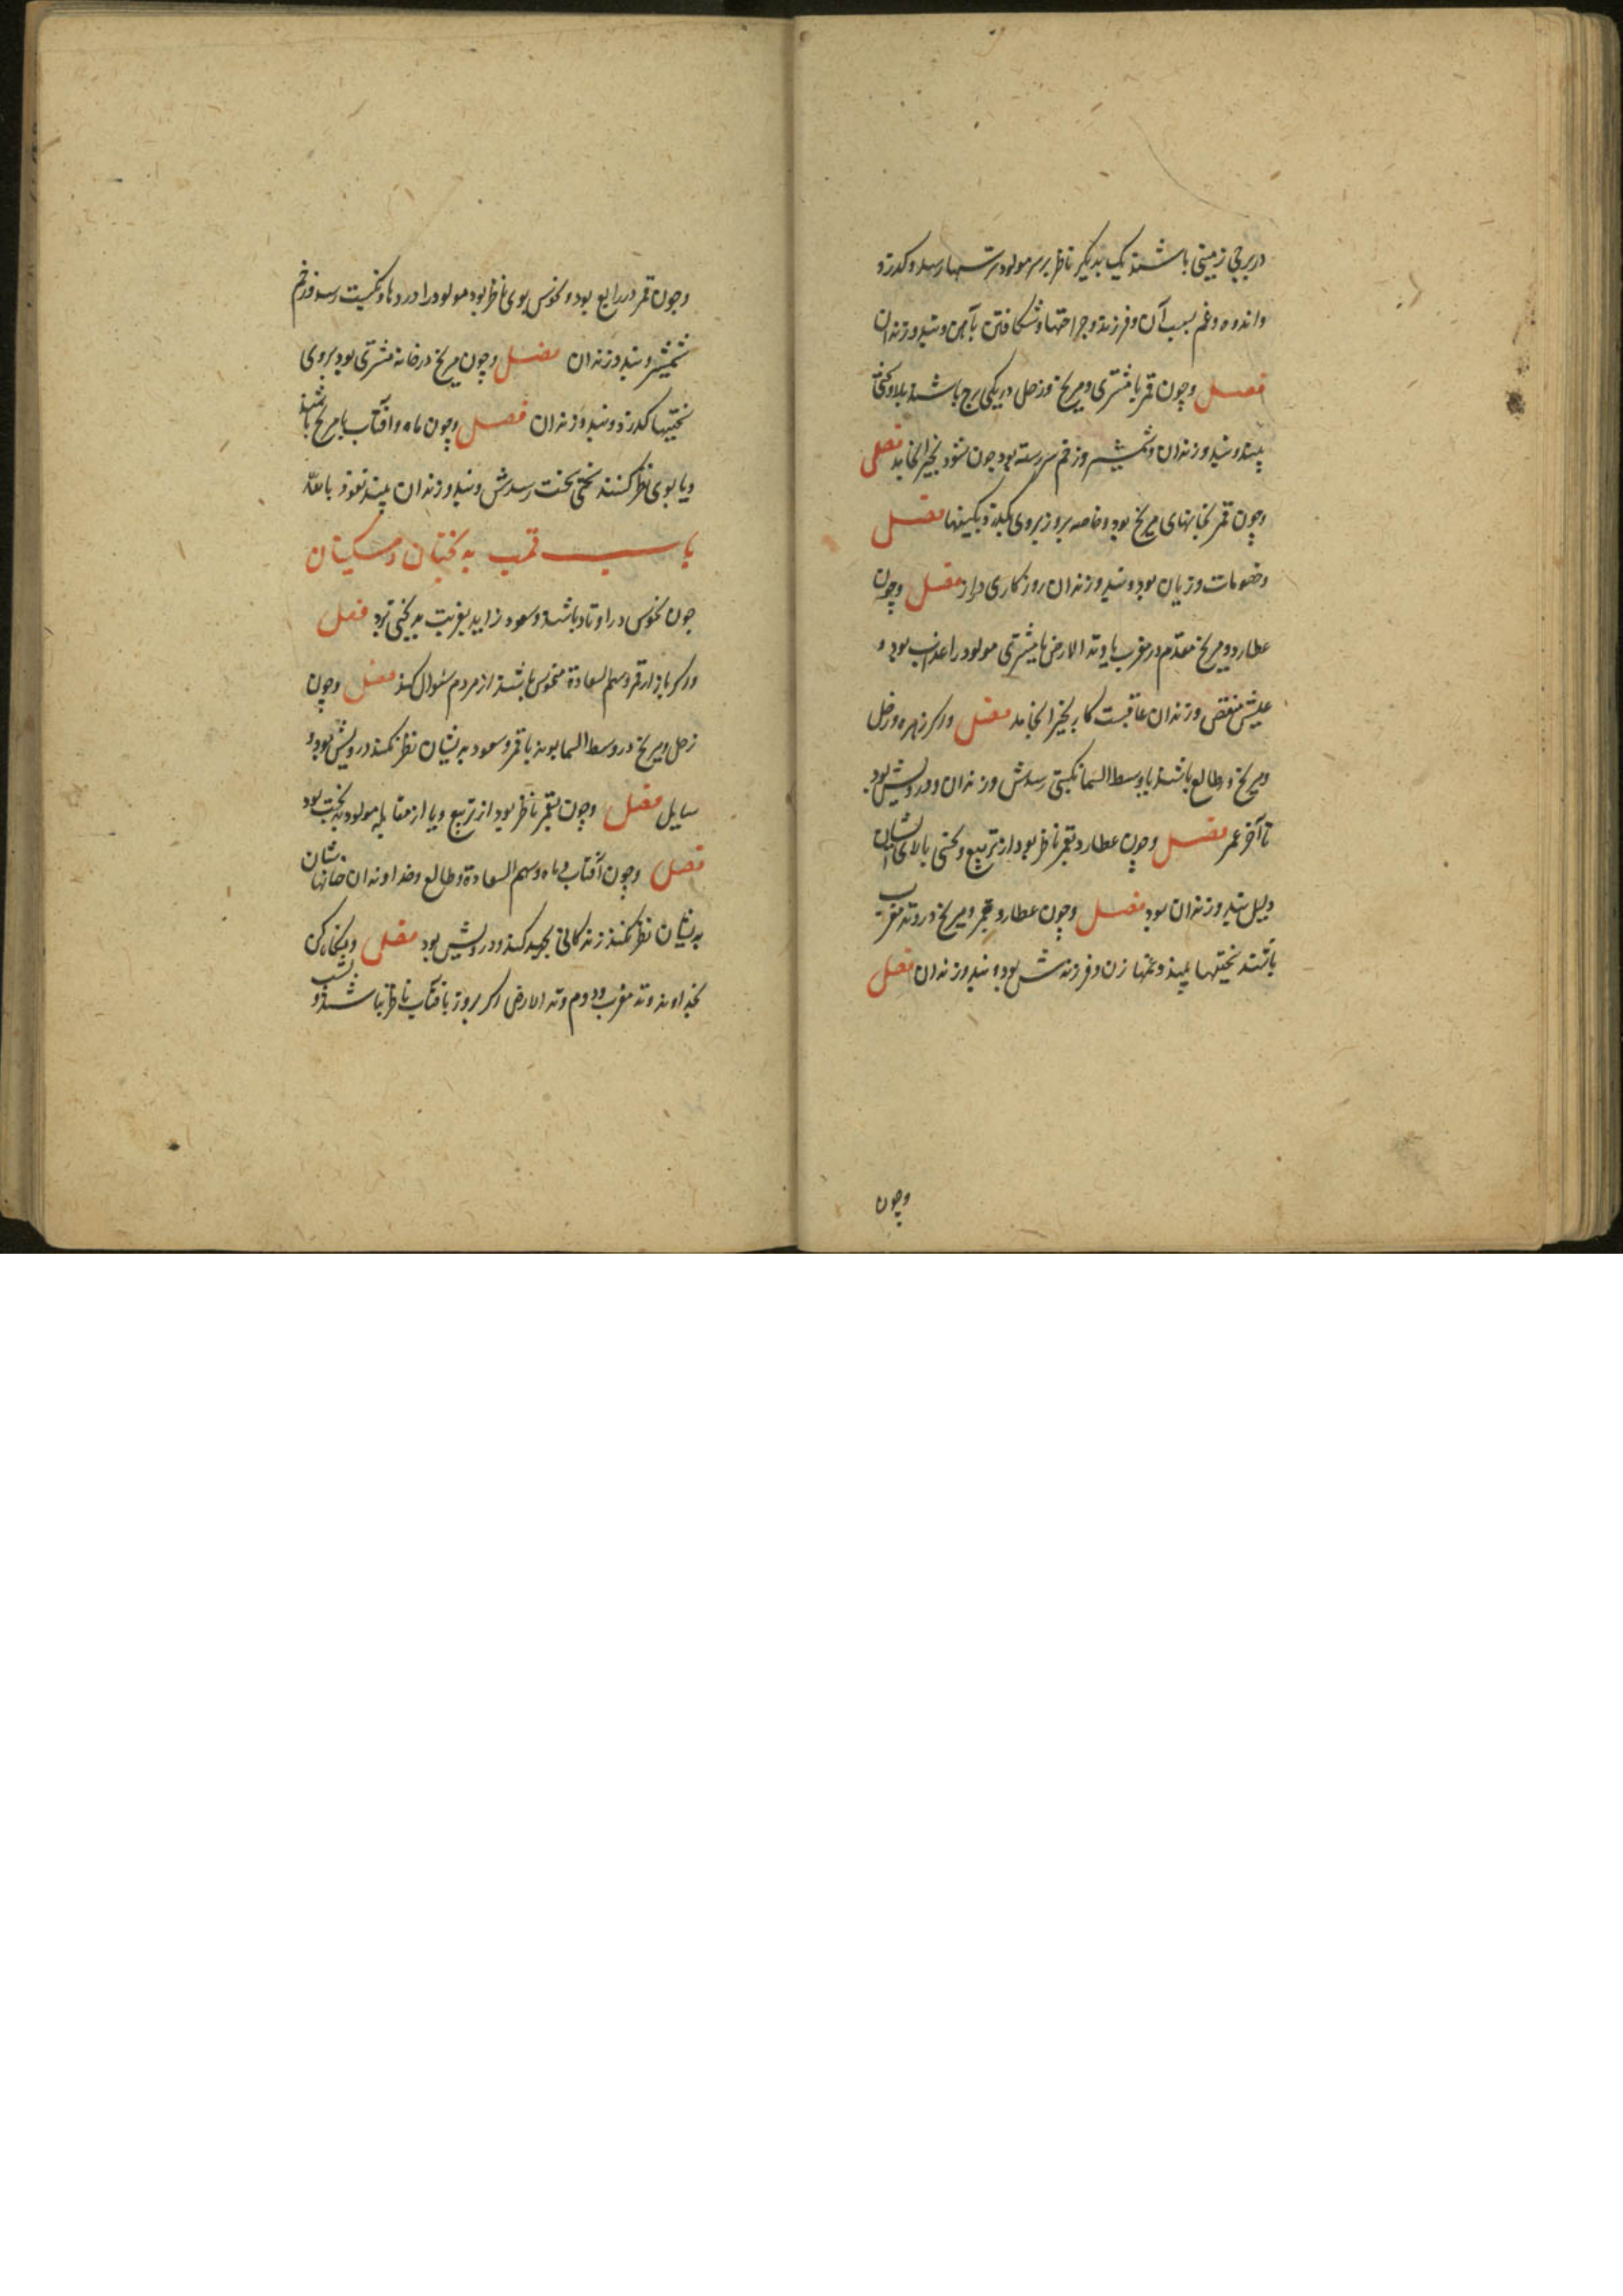 در برجی زمینی باشند یک بدیگر ناظر بر سر مولود رسد و کدرد
واندوه وغم بسبب آن وفرزند وجراحتها وشکافتن بآهن وبند وزندان
فصل وچون قمر با مشتری ومریخ وزحل در یکی برج باشند بلا وسختی
بیند وبند وزندان وشمشیر وزخم بود چون شود بخیر انجامد فصل
وچون قمر بخانهای مریخ بود وخاصه بروز بروی بگذرد فصل
وخصومات وزیان بود وبند وزندان روزکاری دراز فصل وچون
عطارد ومریخ مقدم در مغرب یا وتد الارض با مشتری مولود را عذاب بود و
عیش منغص وزندان عاقبت کار بخیر انجامد فصل واکر زهره وزحل
ومریخ در طالع باشند یا وسط السما نکبتی رسدش وزندان ودرویش بود
تا آخر عمر فصل وچون عطارد بقمر ناظر بود از تربیع ونحسی بالای ایشان
دلیل بند وزندان بود فصل وچون عطارد وقمر ومریخ در وتد مغرب
باشند سختیها بیند وغمها زن وفرزندش بود وبند وزندان فصل
وچون
وچون قمر در رابع بود ونحوس بوی ناظر بود مولود را دردها ونکبت رسد وزخم
شمشیر وبند وزندان فصل وچون مریخ در خانه مشتری بود بروی
سختیها کدرد وبند وزندان فصل وچون ماه وآفتاب با مریخ باشند
ویا بوی نظر کنند سختی سخت رسدش وبند وزندان بیند نعوذ بالله
باب قمب بدبختان ومسکینان
چون نحوس در اوتاد باشند وسعود زاید بغربت بدبختی فصل
واکر قمر وسهم السعادة منحوس باشند از مردم سئوال کند فصل وچون
زحل ومریخ در وسط السما بوند با قمر وسعود بدیشان نظر نکنند درویش بود و
سایل فصل وچون بقمر ناظر بود از تربیع ویا از مقابله مولود بدبخت بود
فصل وچون آفتاب وماه وسهم السعادة وطالع وخداوندان خانهاشان
بدیشان نظر نکنند زندکانی بجهد کند ودرویش بود فصل وبنکاه کن
بخداوند وتد مغرب ودوم وتد الارض اکر بروز بآفتاب ناظر نباشند و بشب